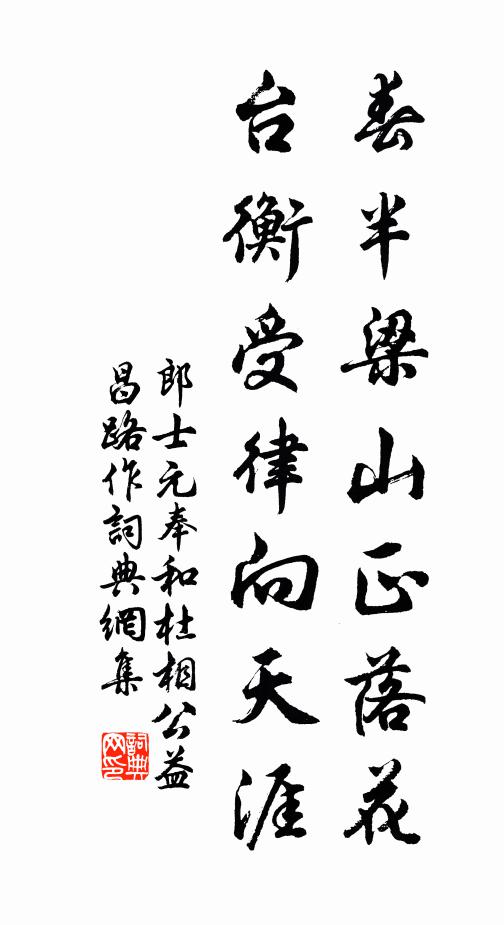 春半梁山正落花
台衡受律向天涯
郎士元奉和杜相公益
昌路作詞典網集
詞典
网印